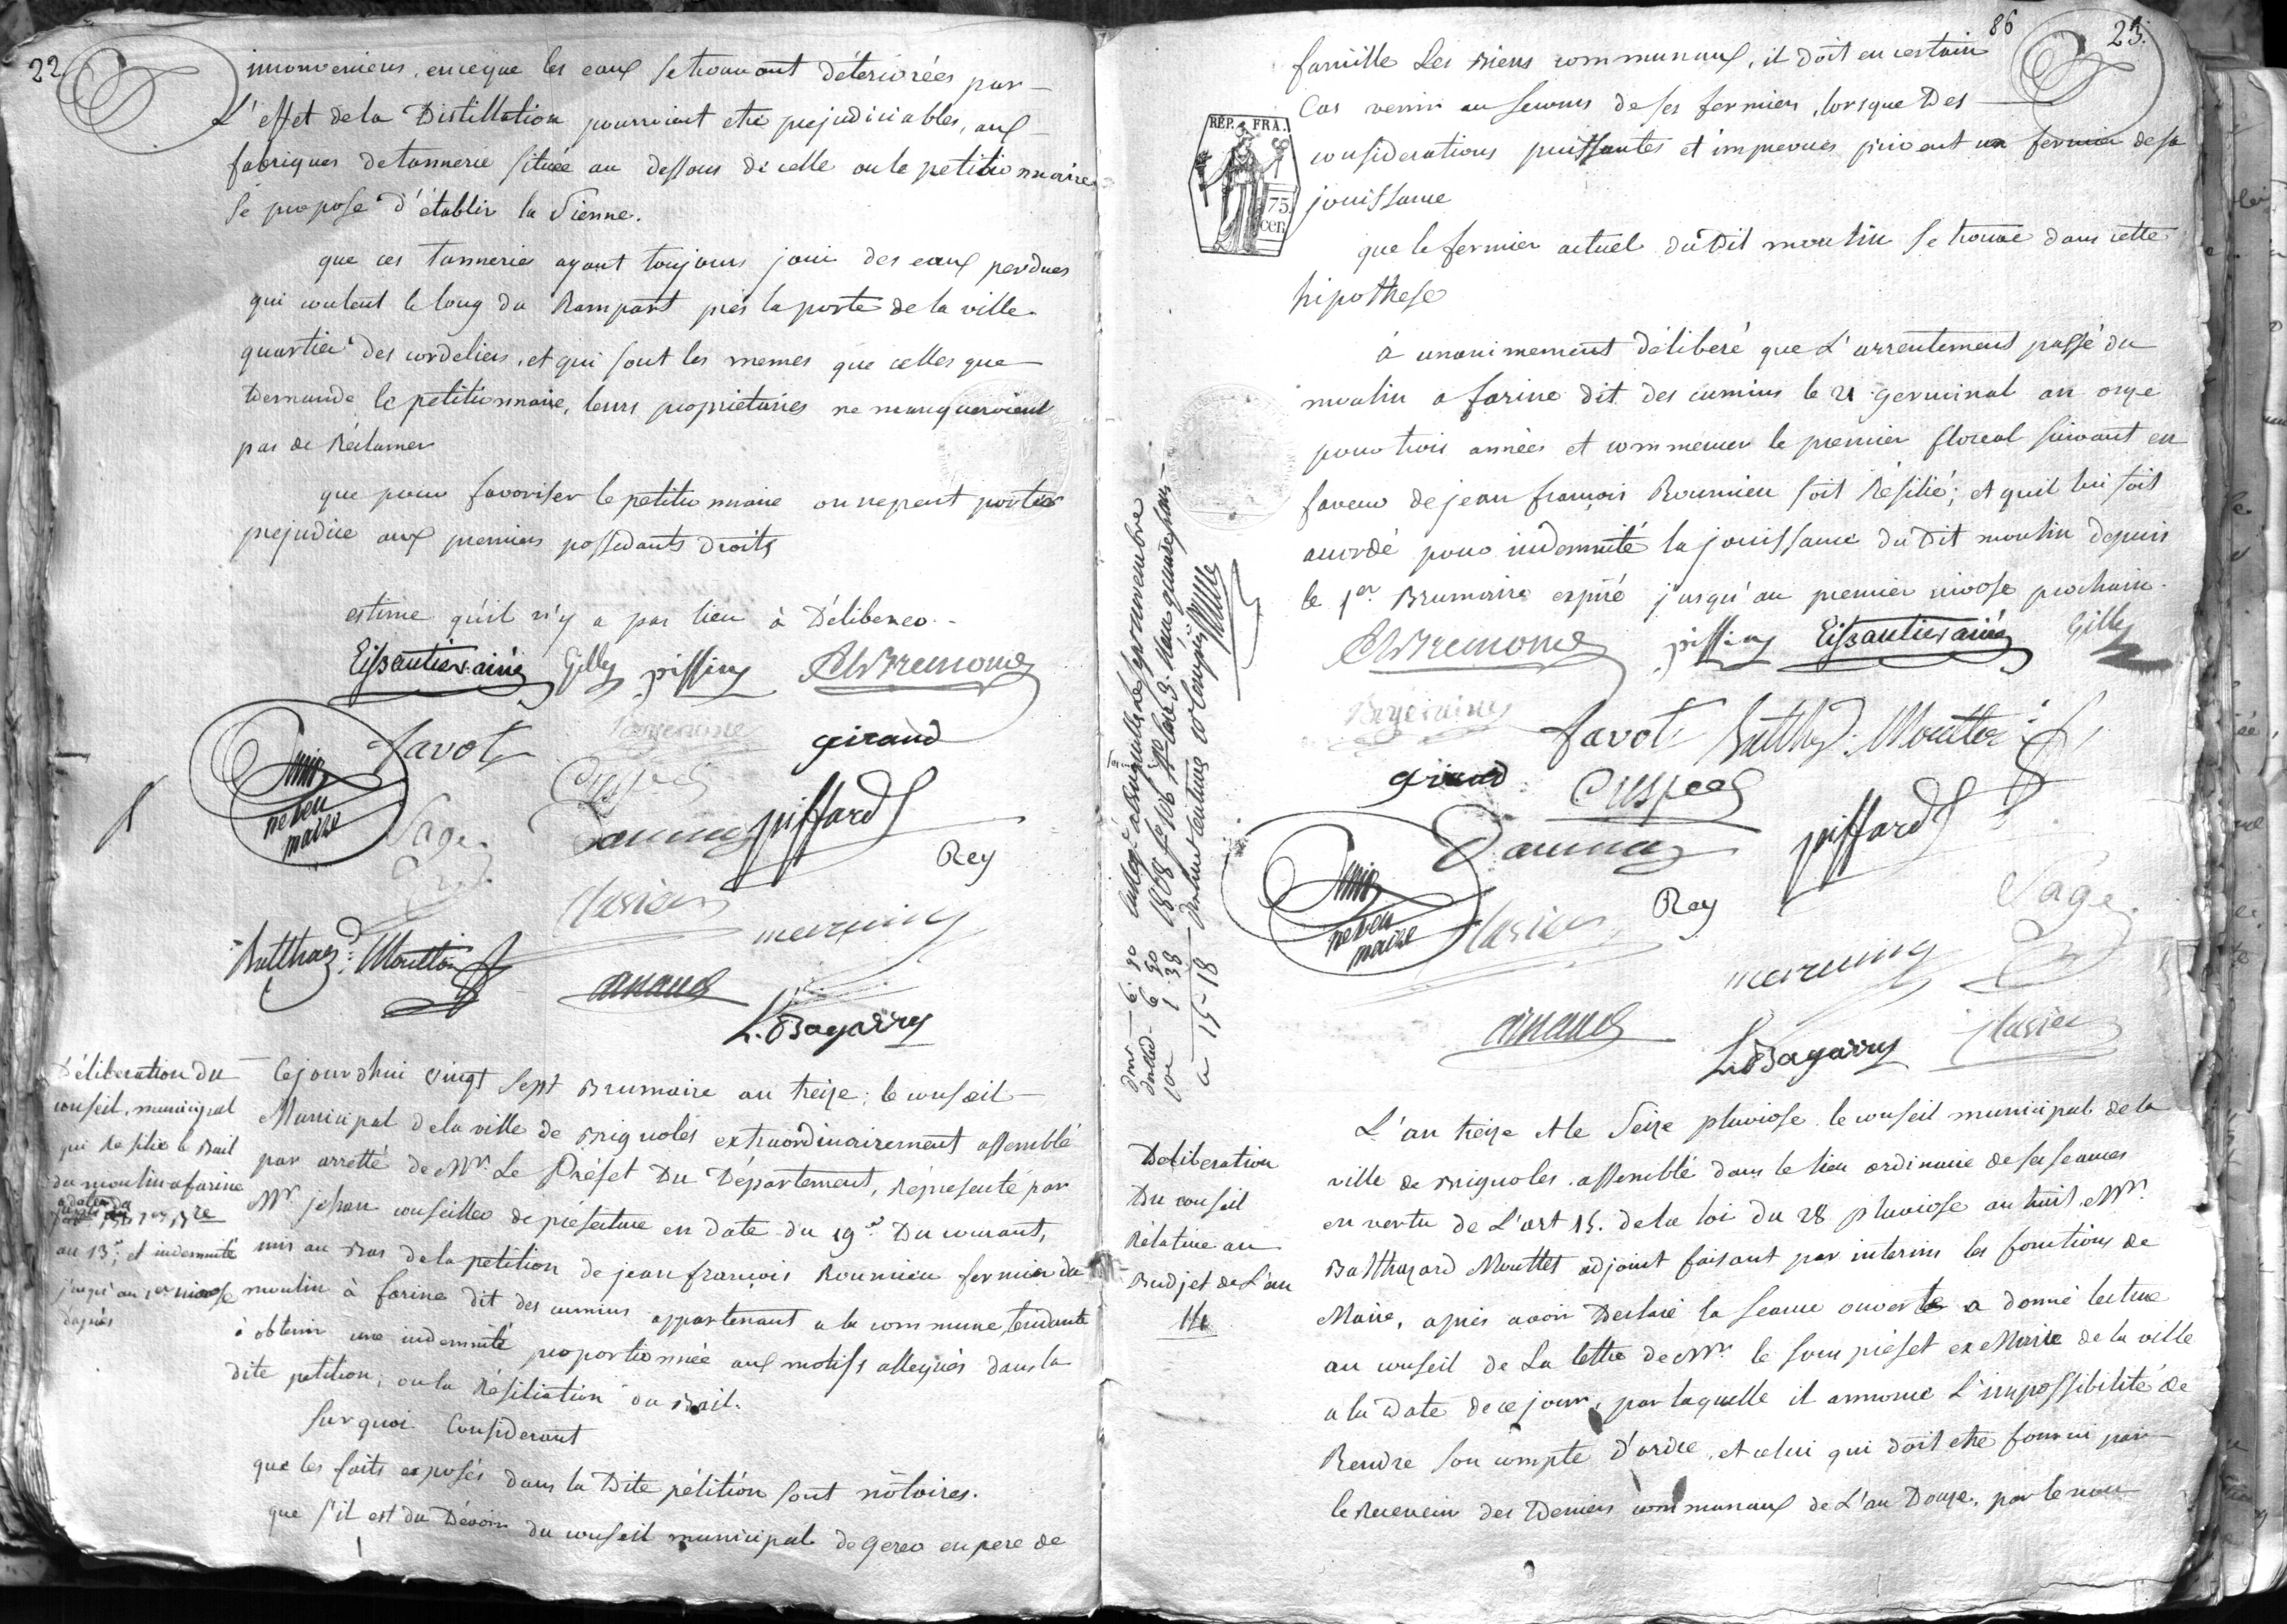 22
inconveniens, enceque les eaux se trouvant déteriorées par
L'effet de la Distillation pourroient etre prejudiciables, aux
fabriques detannerie située au dessous de celle ou le petitionnaire
se propose d'établir la Sienne.
que ces tanneries ayant toujours joui des eaux perdues
qui coulent le long du Rampart près la porte de la ville
quartier des cordeliers, et qui sont les memes que celles que
Demande le petitionnaire, leurs proprietaires ne manqueroient
pas de Réclamer
que pour favoriser le petitionnaire on ne peut porter
prejudice aux premiers possedants droits
estime qu'il n'y a pas lieu à Déliberer.
Eissautier ainé Gilly piffing Ch Bremond
favot giraud
neveu
maire
Sage Daumas piffard
Rey
Clavier
Balthazd. Mouttet
arnaud
L. Bagarry
Déliberation du
conseil municipal
qui Résilie le Bail
du moulin a farine
an 13e. et indemnité
jusqu'au 1er nivose
d'après
Cejourdhui vingt Sept Brumaire an treize; le conseil
Municipal de la ville de Brignoles extraordinairement assemblé
par arretté de Mr. Le Préfet Du Département, Réprésenté par
Mr jehan conseiller de préfecture en date du 19e. Du courant,
mis au Bas de la petition de jean françois Roumieu fermier du
moulin à farine dit des cumins appartenant a la commune, tendante
à obtenir une indemnité proportionnée aux motifs allegués dans la
dite petition; ou la Résiliation du Bail.
Sur quoi Considerant
que les faits exposés dans la Dite pétition sont nôtoires.
que s'il est du Dévoir du conseil municipal de gerer en pere de
86
23.
famille Les Biens communaux, il doit en certain
Cas venir au secours de ses fermiers, lorsque Des
considerations puissantes et imprevues privent un fermier de sa
jouissance
RÉP. FRA.
75.
CEN.
que le fermier actuel du Dit moulin se trouve dans cette
hipothese
à unanimement délibéré que L'arrentement passé du
moulin a farine dit des cumins le 21 germinal an onze
pour trois années et commencer le premier floreal suivant en
faveur de jean françois Roumieu soit Résilié; et quil lui soit
accordé pour indemnité la jouissance du Dit moulin depuis
le 1er. Brumaire expiré jusqu'au premier nivose prochain.
Ch Bremond piffing Eissautier ainé Gilly
favot Balthazd. Mouttet
giraud Crespel
Daumas piffard
neveu
maire
Clavier Rey Sage
arnaud
L. Bagarry Clavier
6. 90
1. 38
15-18
Deliberation
Du conseil
Rélative au
Budjet de L'an
14
L'an treize et le Seize pluviose le conseil municipal de la
ville de Brignoles assemblé dans le lieu ordinaire de ses seances
en vertu de L'art 15. de la loi du 28 pluviose an huit. Mr.
Balthazard Mouttet adjoint faisant par interim les fonctions de
Maire, après avoir Declaré la seance ouverte a donné lecture
au conseil de La lettre de Mr. le sous préfet ex Maire de la ville
a la Date de ce jour, par laquelle il annonce L'impossibilité de
Rendre son compte d'ordre, et celui qui doit etre fourni par
le Receveur des Deniers communaux de L'an Douze, par le non